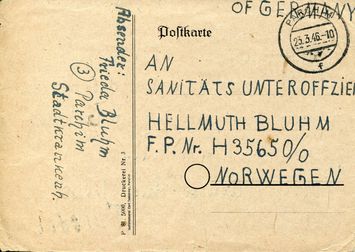 OF GERMANY
Postkarte
PARCHIM
23.3.46.-10
f
AN
SANITÄTS UNTEROFFZIE
HELLMUTH BLUHM
F.P.Nr. H35650/0
NORWEGEN
Absender:
Frieda Bluhm
③ Parchim
Stadtkrankenh.
5000, Druckerei Nr. 3